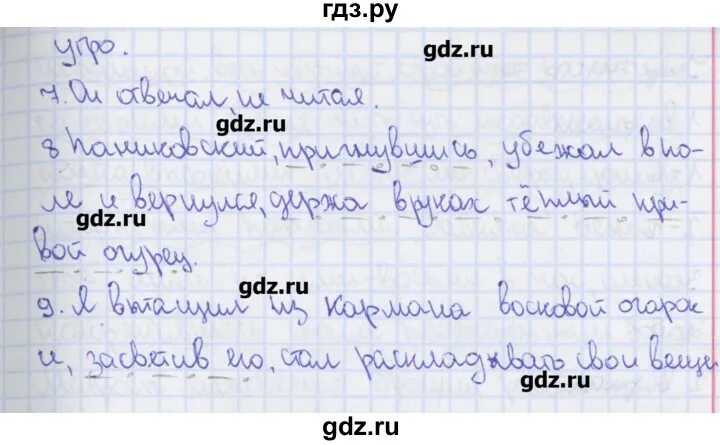 гдз.ру
утро.
gdz.ru
7. Он отвечал, не читая.
gdz.ru
8 Паниковский, пригнувшись, убежал в по-
ле и вернулся, держа в руках тёплый кри-
gdz.ru
gdz.ru
вой огурец.
gdz.ru
9. Я вытащил из кармана восковой огарок
и, засветив его, стал раскладывать свои вещи
gdz.ru